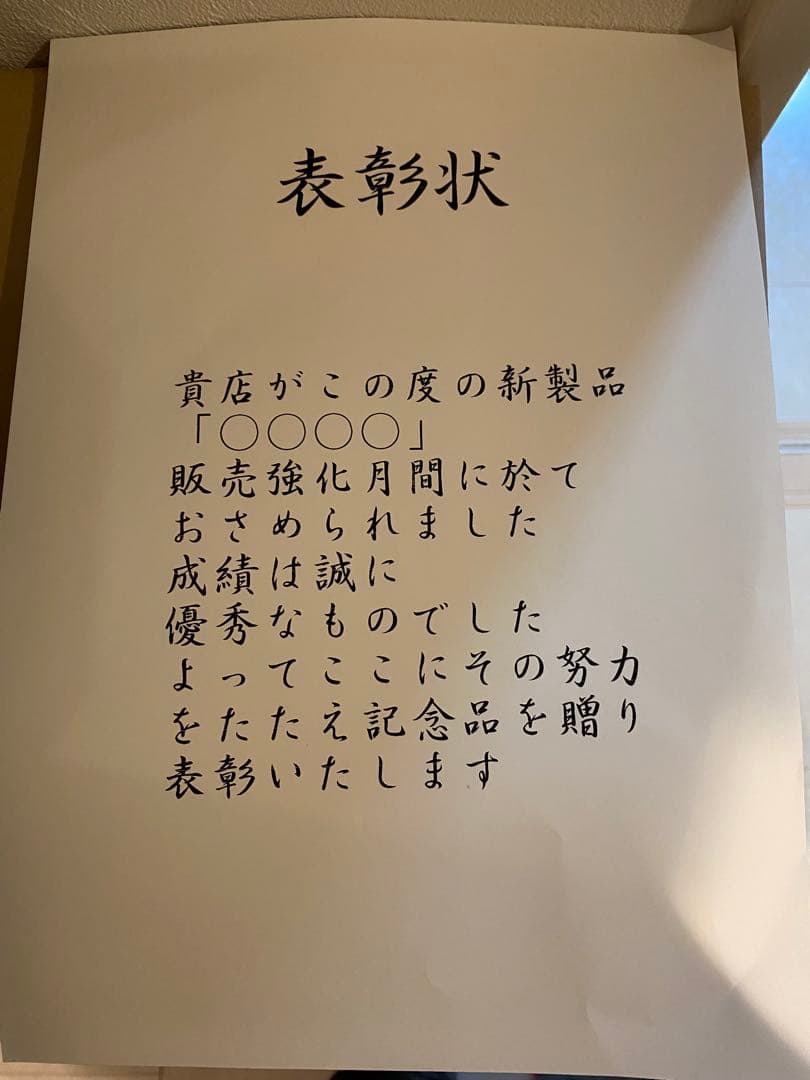 表彰状
貴店がこの度の新製品
「○○○○」
販売強化月間に於て
おさめられました
成績は誠に
優秀なものでした
よってここにその努力
をたたえ記念品を贈り
表彰いたします